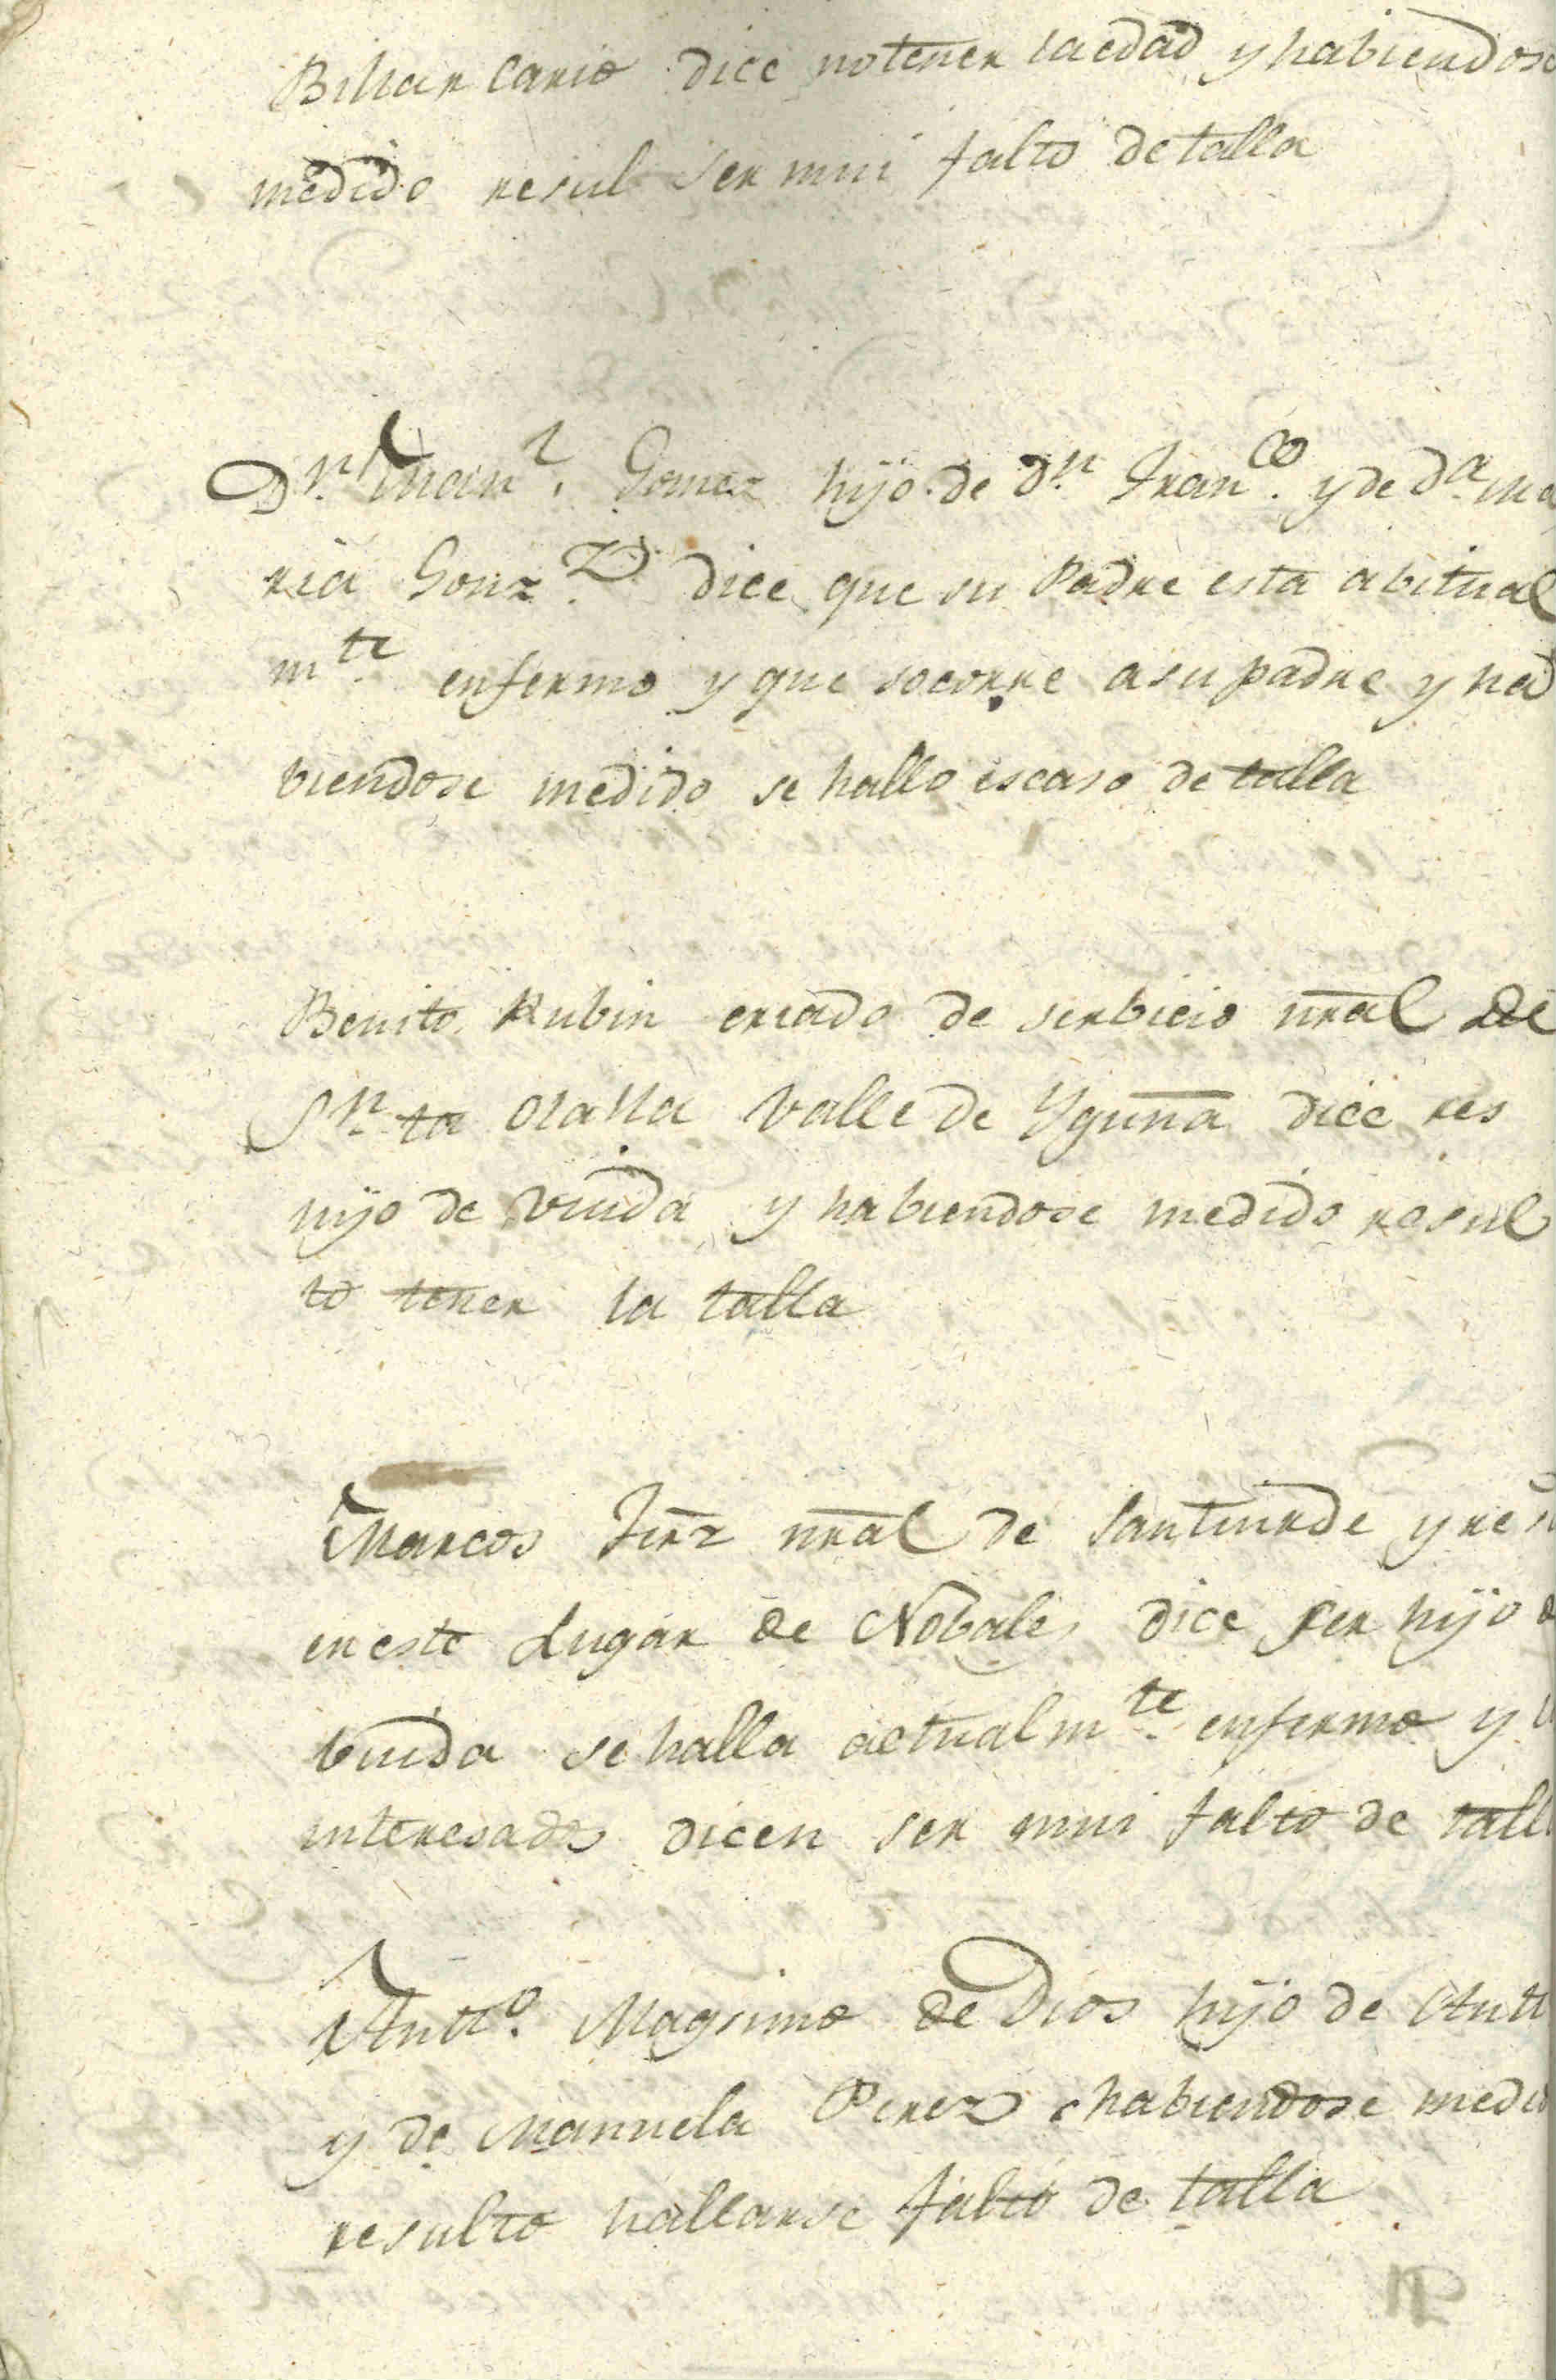 Billar Cario dice no tener la edad y habiendose
medido resul ser mui falto de talla
Dn. Man.l Gomez hijo de dn Fran.co y de da. Ma
ria Gonz.z dice que su Padre esta abitual
m.te enfermo y que socorre a su padre y ha
viendose medido se hallo escaso de talla
Benito Rubin criado de serbicio nral de
Sn. ta Olalla Valle de Yguña dice res
hijo de viuda y habiendose medido resul
to tener la talla
Marcos Frrz nral de Santiurde y re
en este Lugar de Nobales dice ser hijo d
buida se halla actualm.te enfermo y
interesados dicen ser mui falto de tall
Antt.o Magsimo de Dios hijo de Antt
y de Manuela Perez habiendose medi
resulto hallarse falto de talla